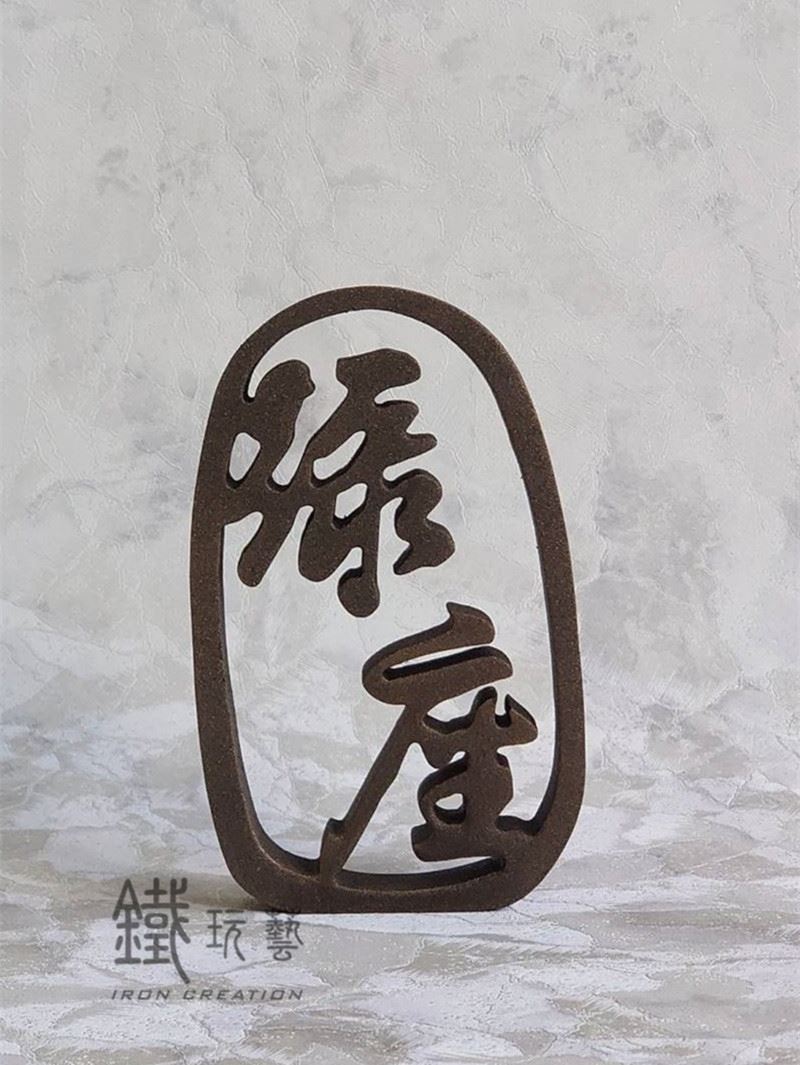 座
鐵玩藝
IRON CREATION